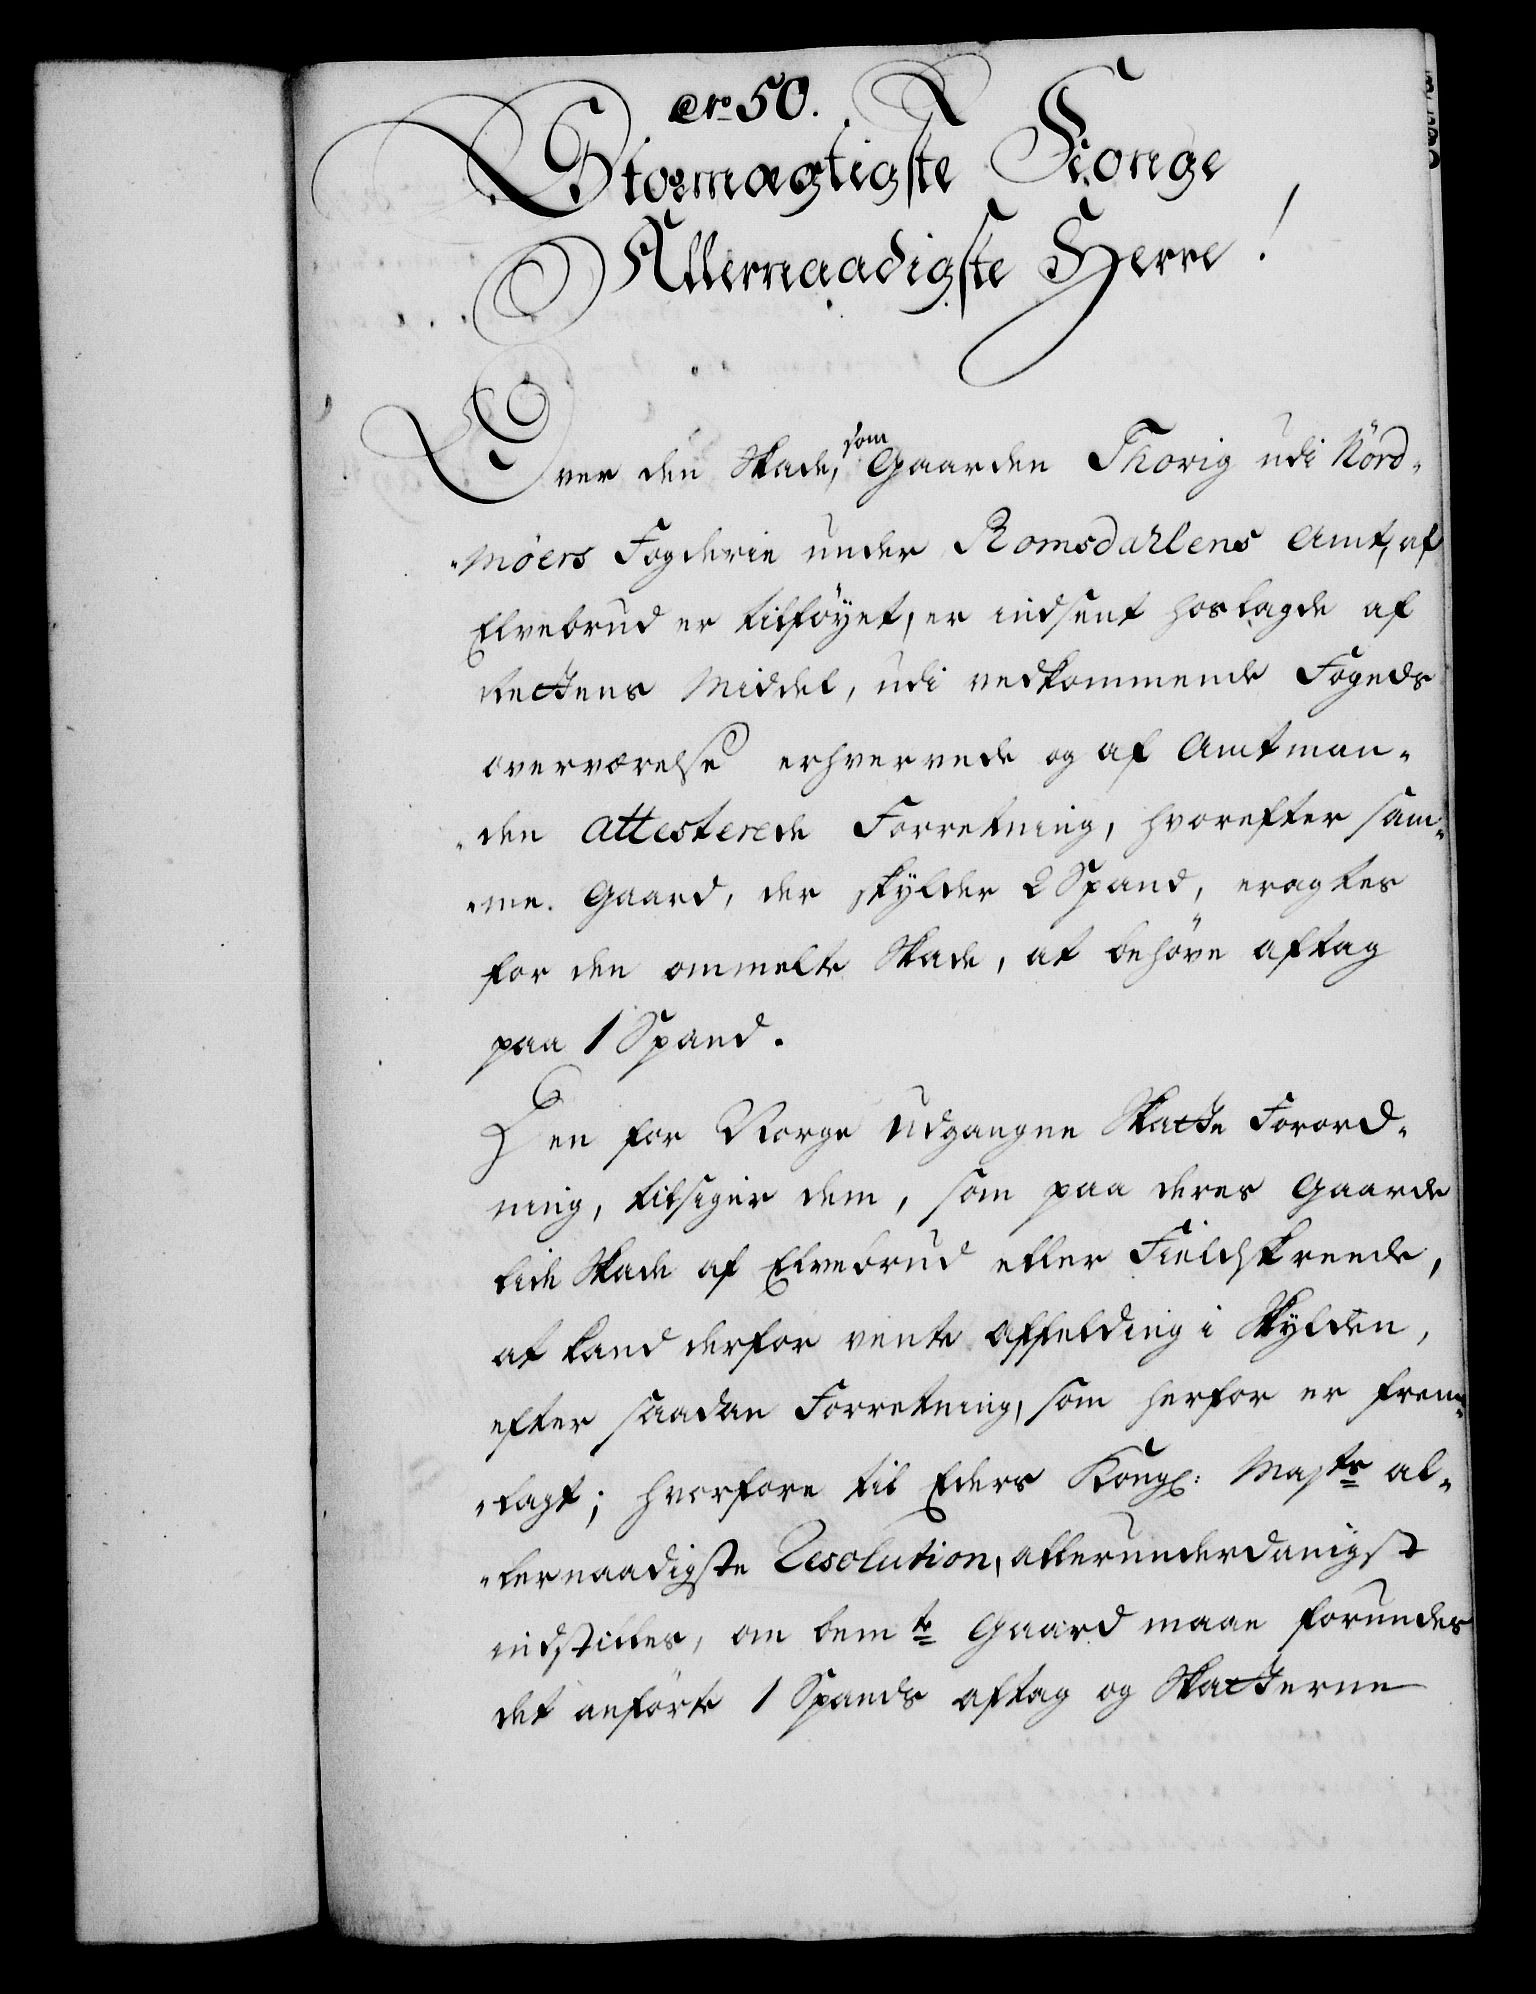 No 50.
Stormægtigste Konge
Allernaadigste Herre!
Over den Skade, som Gaarden Thorig udi Nord-
-møers Fogderie under Romsdahlens Amt, af
Elvebrud er tilføyet, er indsent hoslagde af
Rettens Middel, udi vedkommende Fogeds
overværelse erhvervede og af Amtman-
-den attesterede Forretning, hvorefter sam-
-me Gaard, der skylder 2 Spand, eragtes
for den ommelte Skade, at behøve aftag
paa 1 Spand.
Den for Norge udgangne Skatte Forord-
ning, tilsiger dem, som paa deres Gaarde
lide Skade af Elvebrud eller Fieldskreede,
at kand derfor vente affelding i Skylden,
efter saadan Forretning, som herfor er frem-
-lagt; hvorfore til Eders Kongl: Majts al-
-lernaadigste Resolution, allerunderdanigst
indstilles, om bemte Gaard maae forundes
det anførte 1 Spands aftag og Skatterne